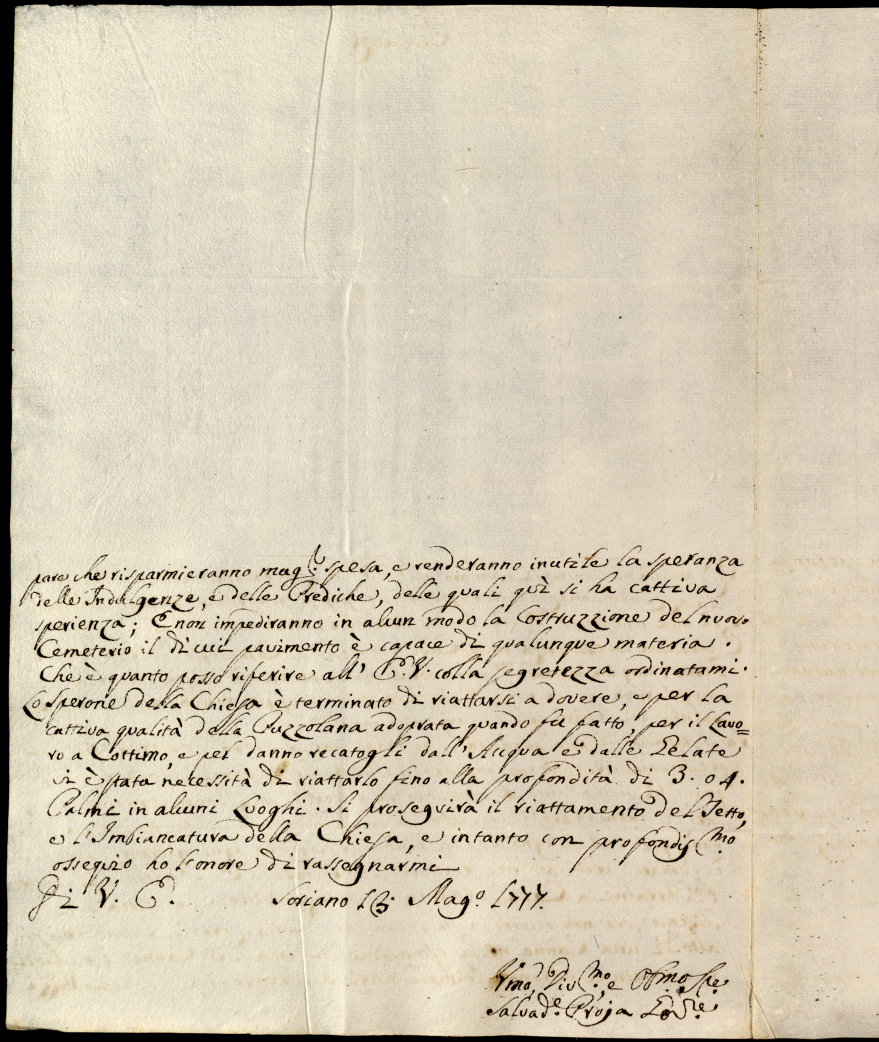 pare che risparmieranno mag.r spesa, e renderanno inutile la speranza
delle Indulgenze, e delle Prediche, delle quali quì si ha cattiva
sperienza; E non impediranno in alcun modo la Costruzzione del nuovo
Cemeterio il di cui pavimento è capace di qualunque materia.
Che è quanto posso riferire all' E. V. colla segretezza ordinatami.
Lo Sperone della Chiesa è terminato di riattarsi a dovere, e per la
cattiva qualità della Puzzolana adoprata quando fù fatto, per il Lavo=
ro a Cottimo, e pel danno recatogli dall' Acqua e dalle Gelate
vi è stata necessità di riattarlo fino alla profondità di 3. o 4.
Palmi in alcuni Luoghi. Si proseguirà il riattamento del Tetto,
e l'Imbiancatura della Chiesa, e intanto con profondis.mo
ossequio ho l'onore di rassegnarmi
Di V. E. Soriano 13. Mag.o 1777.
Umo, Div.mo, e Obmo
Salvad.e Proja